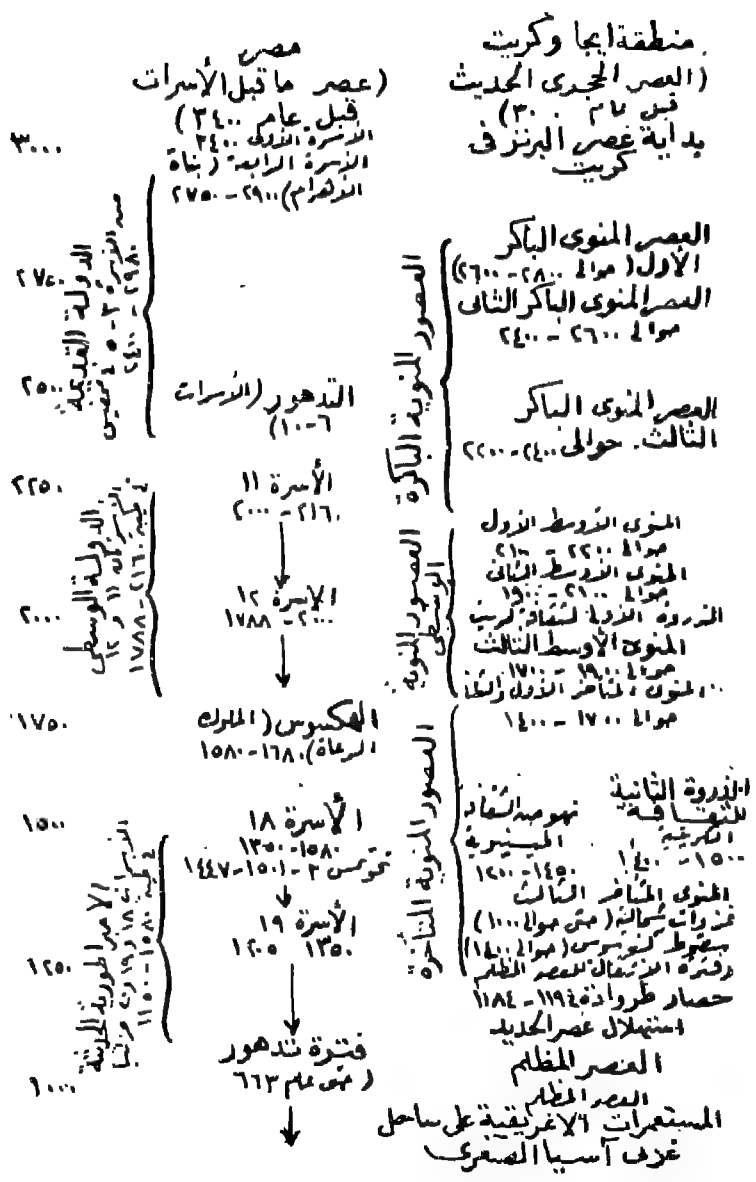 منطقة ايجا وكريت
(العصر الحجرى الحديث
قبل عام ٣٠٠٠)
بداية عصر البرنز فى
كريت
العصور المنوية الباكرة
العصر المنوى الباكر
الأول (حوالى ٢٨٠٠-٢٦٠٠)
العصر المنوى الباكر الثانى
حوالى ٢٦٠٠ - ٢٤٠٠
العصر المنوى الباكر
الثالث. حوالى ٢٤٠٠-٢٢٠٠
العصور المنوية
الوسطى
المنوى الأوسط الأول
حوالى ٢٢٠٠ - ٢١٠٠
المنوى الأوسط الثانى
حوالى ٢١٠٠ - ١٩٠٠
الذروة الأولى لثقافة كريت
المنوى الأوسط الثالث
حوالى ١٩٠٠ - ١٧٠٠
العصور المنوية المتأخرة
المنوى المتأخر الأول والثا
حوالى ١٧٠٠ - ١٤٠٠
الذروة الثانية
للثقافة
الكريتية
١٥٠٠-١٤٠٠
نهوض الثقافة
الميسينيرية
١٤٥٠-١٢٠٠
المنوى المتأخر الثالث
غزوات شمالية (حتى حوالى ١٠٠٠)
سقوط كنوسوس (حوالى ١٤٠٠)
وفترة الانتقال للعصر المظلم
حصار طروادة ١١٩٤-١١٨٤
استهلال عصر الحديد
العصر المظلم
العصر المظلم
المستعمرات الاغريقية على ساحل
غربى آسيا الصغرى
مصر
(عصر ما قبل الأسرات
قبل عام ٣٤٠٠)
الأسرة الأولى ٣٤٠٠
الأسرة الرابعة (بناة
الأهرام) ٢٩٠٠-٢٧٥٠
التدهور (الأسرات
٦-١٠)
الأسرة ١١
٢١٦٠ - ٢٠٠٠
الأسرة ١٢
٢٠٠٠ - ١٧٨٨
الهكسوس (الملوك
الرعاة) ١٦٨٠-١٥٨٠
الأسرة ١٨
١٥٨٠-١٣٥٠
تحوتمس ٣ - ١٥٠١-١٤٤٧
الأسرة ١٩
١٣٥٠ ١٢٠٥
فترة تدهور
(حتى عام ٦٦٣
الدولة القديمة
من الأسرة ٣-٥ فى ممفيس
٢٩٨٠ - ٢٤٠٠
الدولة الوسطى
الأسرتان ١١ و ١٢
فى طيبة ٢١٦٠-١٧٨٨
الامبراطورية الحديثة
الأسرات ١٨ و ١٩ و ٢٠
فى طيبة ١٥٨٠-١١٥٠
٣٠٠٠
٢٧٥٠
٢٥٠٠
٢٢٥٠
٢٠٠٠
١٧٥٠
١٥٠٠
١٢٥٠
١٠٠٠